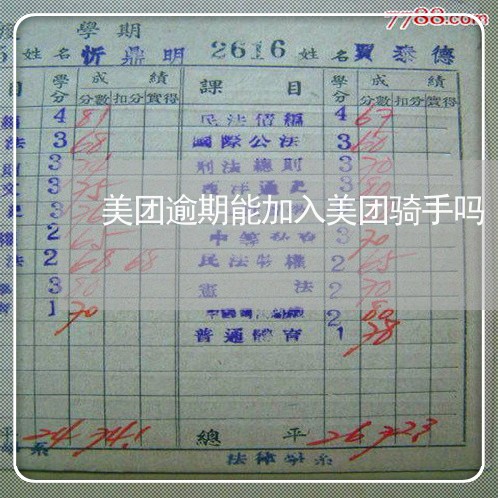 7788.com
學期
姓名 忻鼎明 2616 姓名 賈泰德
目 學分 成績 課目 學分 成績
分數 扣分 實得 分數 扣分 實得
4 81 民法債編 4 67
法 3 68 國際公法 3 60
3 刑法總則 3 70
3 75 西洋通史 3 80
3
2 65 3 70
法 2 68 68 民法物權 2 65
3 80 憲法 2 70
1 70 2 80
普通體育 1 78
美团逾期能加入美团骑手吗
平 24 74.1 總平 26 72.3
系 法律學系